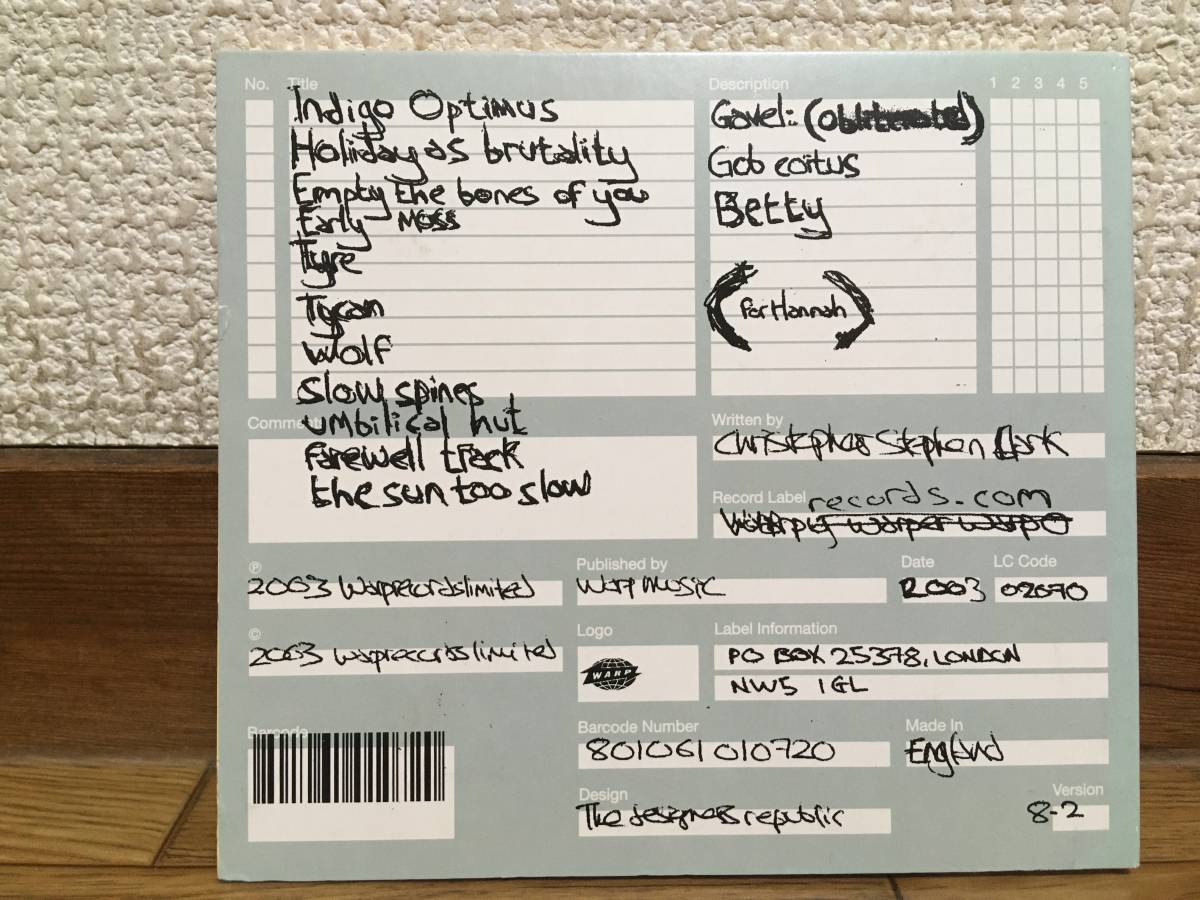 No. Title
Indigo Optimus
Holiday as brutality
Empty the bones of you
Early Moss
Tyre
Tycan
Wolf
Slow spines
umbilical hut
farewell track
the sun too slow
Description 1 2 3 4 5
Gavel: (obliterated)
Gob coitus
Betty
(for Hannah)
Comments
Written by
Christopher Stephen Clark
Record Label records.com
℗
2003 Warprecordslimited
Published by
Warp Music
Date
2003
LC Code
02070
©
2003 warprecordslimited
Logo
WARP
Label Information
PO BOX 25378, LONDON
NW5 1GL
Barcode
Barcode Number
801061010720
Made In
England
Design
The designers republic
Version
8-2